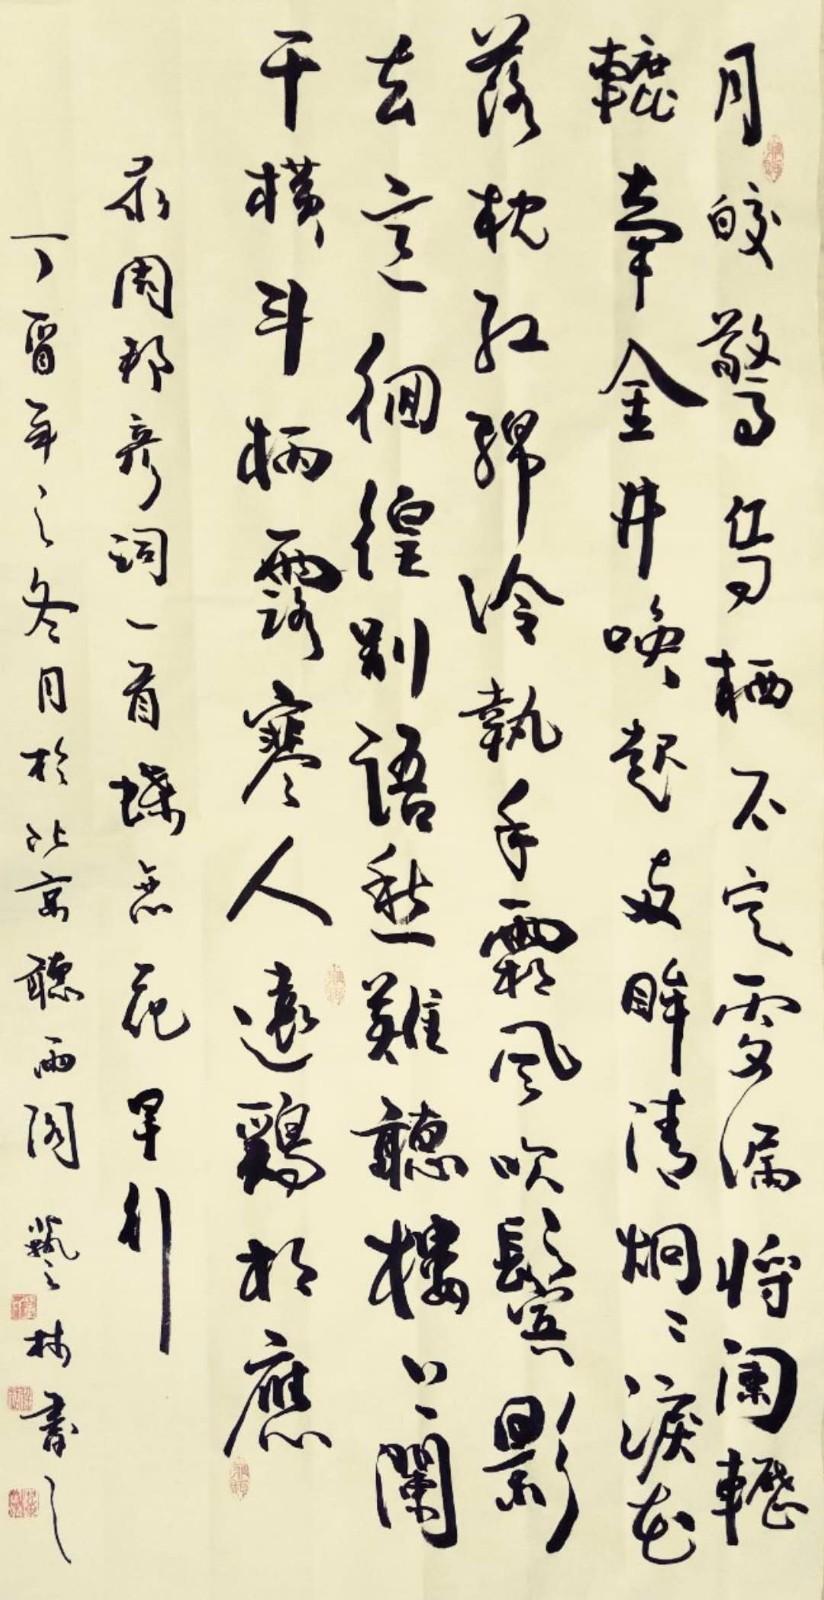 月皎驚烏栖不定更漏將闌轣
轆牽金井喚起兩眸清炯〻淚花
落枕紅綿冷執手霜風吹鬢影
去意徊徨别語愁難聽樓上闌
干橫斗柄露寒人遠鷄相應
录周邦彦詞一首蝶恋花早行
丁酉年之冬月於北京聽雨閣 藝林書之